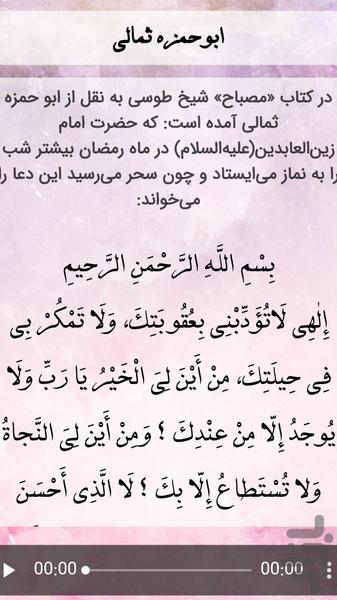 ابوحمزه ثمالی
در کتاب «مصباح» شیخ طوسی به نقل از ابو حمزه
ثمالی آمده است: که حضرت امام
زین‌العابدین(علیه‌السلام) در ماه رمضان بیشتر شب
را به نماز می‌ایستاد و چون سحر می‌رسید این دعا را
می‌خواند:
بِسْمِ اللَّهِ الرَّحْمَنِ الرَّحِيمِ
إِلٰهِى لَاتُؤَدِّبْنِى بِعُقُوبَتِكَ، وَلَا تَمْكُرْ بِى
فِى حِيلَتِكَ، مِنْ أَيْنَ لِىَ الْخَيْرُ يَا رَبِّ وَلَا
يُوجَدُ إِلّا مِنْ عِنْدِكَ ؟ وَمِنْ أَيْنَ لِىَ النَّجاةُ
وَلا تُسْتَطاعُ إِلّا بِكَ ؟ لَا الَّذِى أَحْسَنَ
00:00 00:00